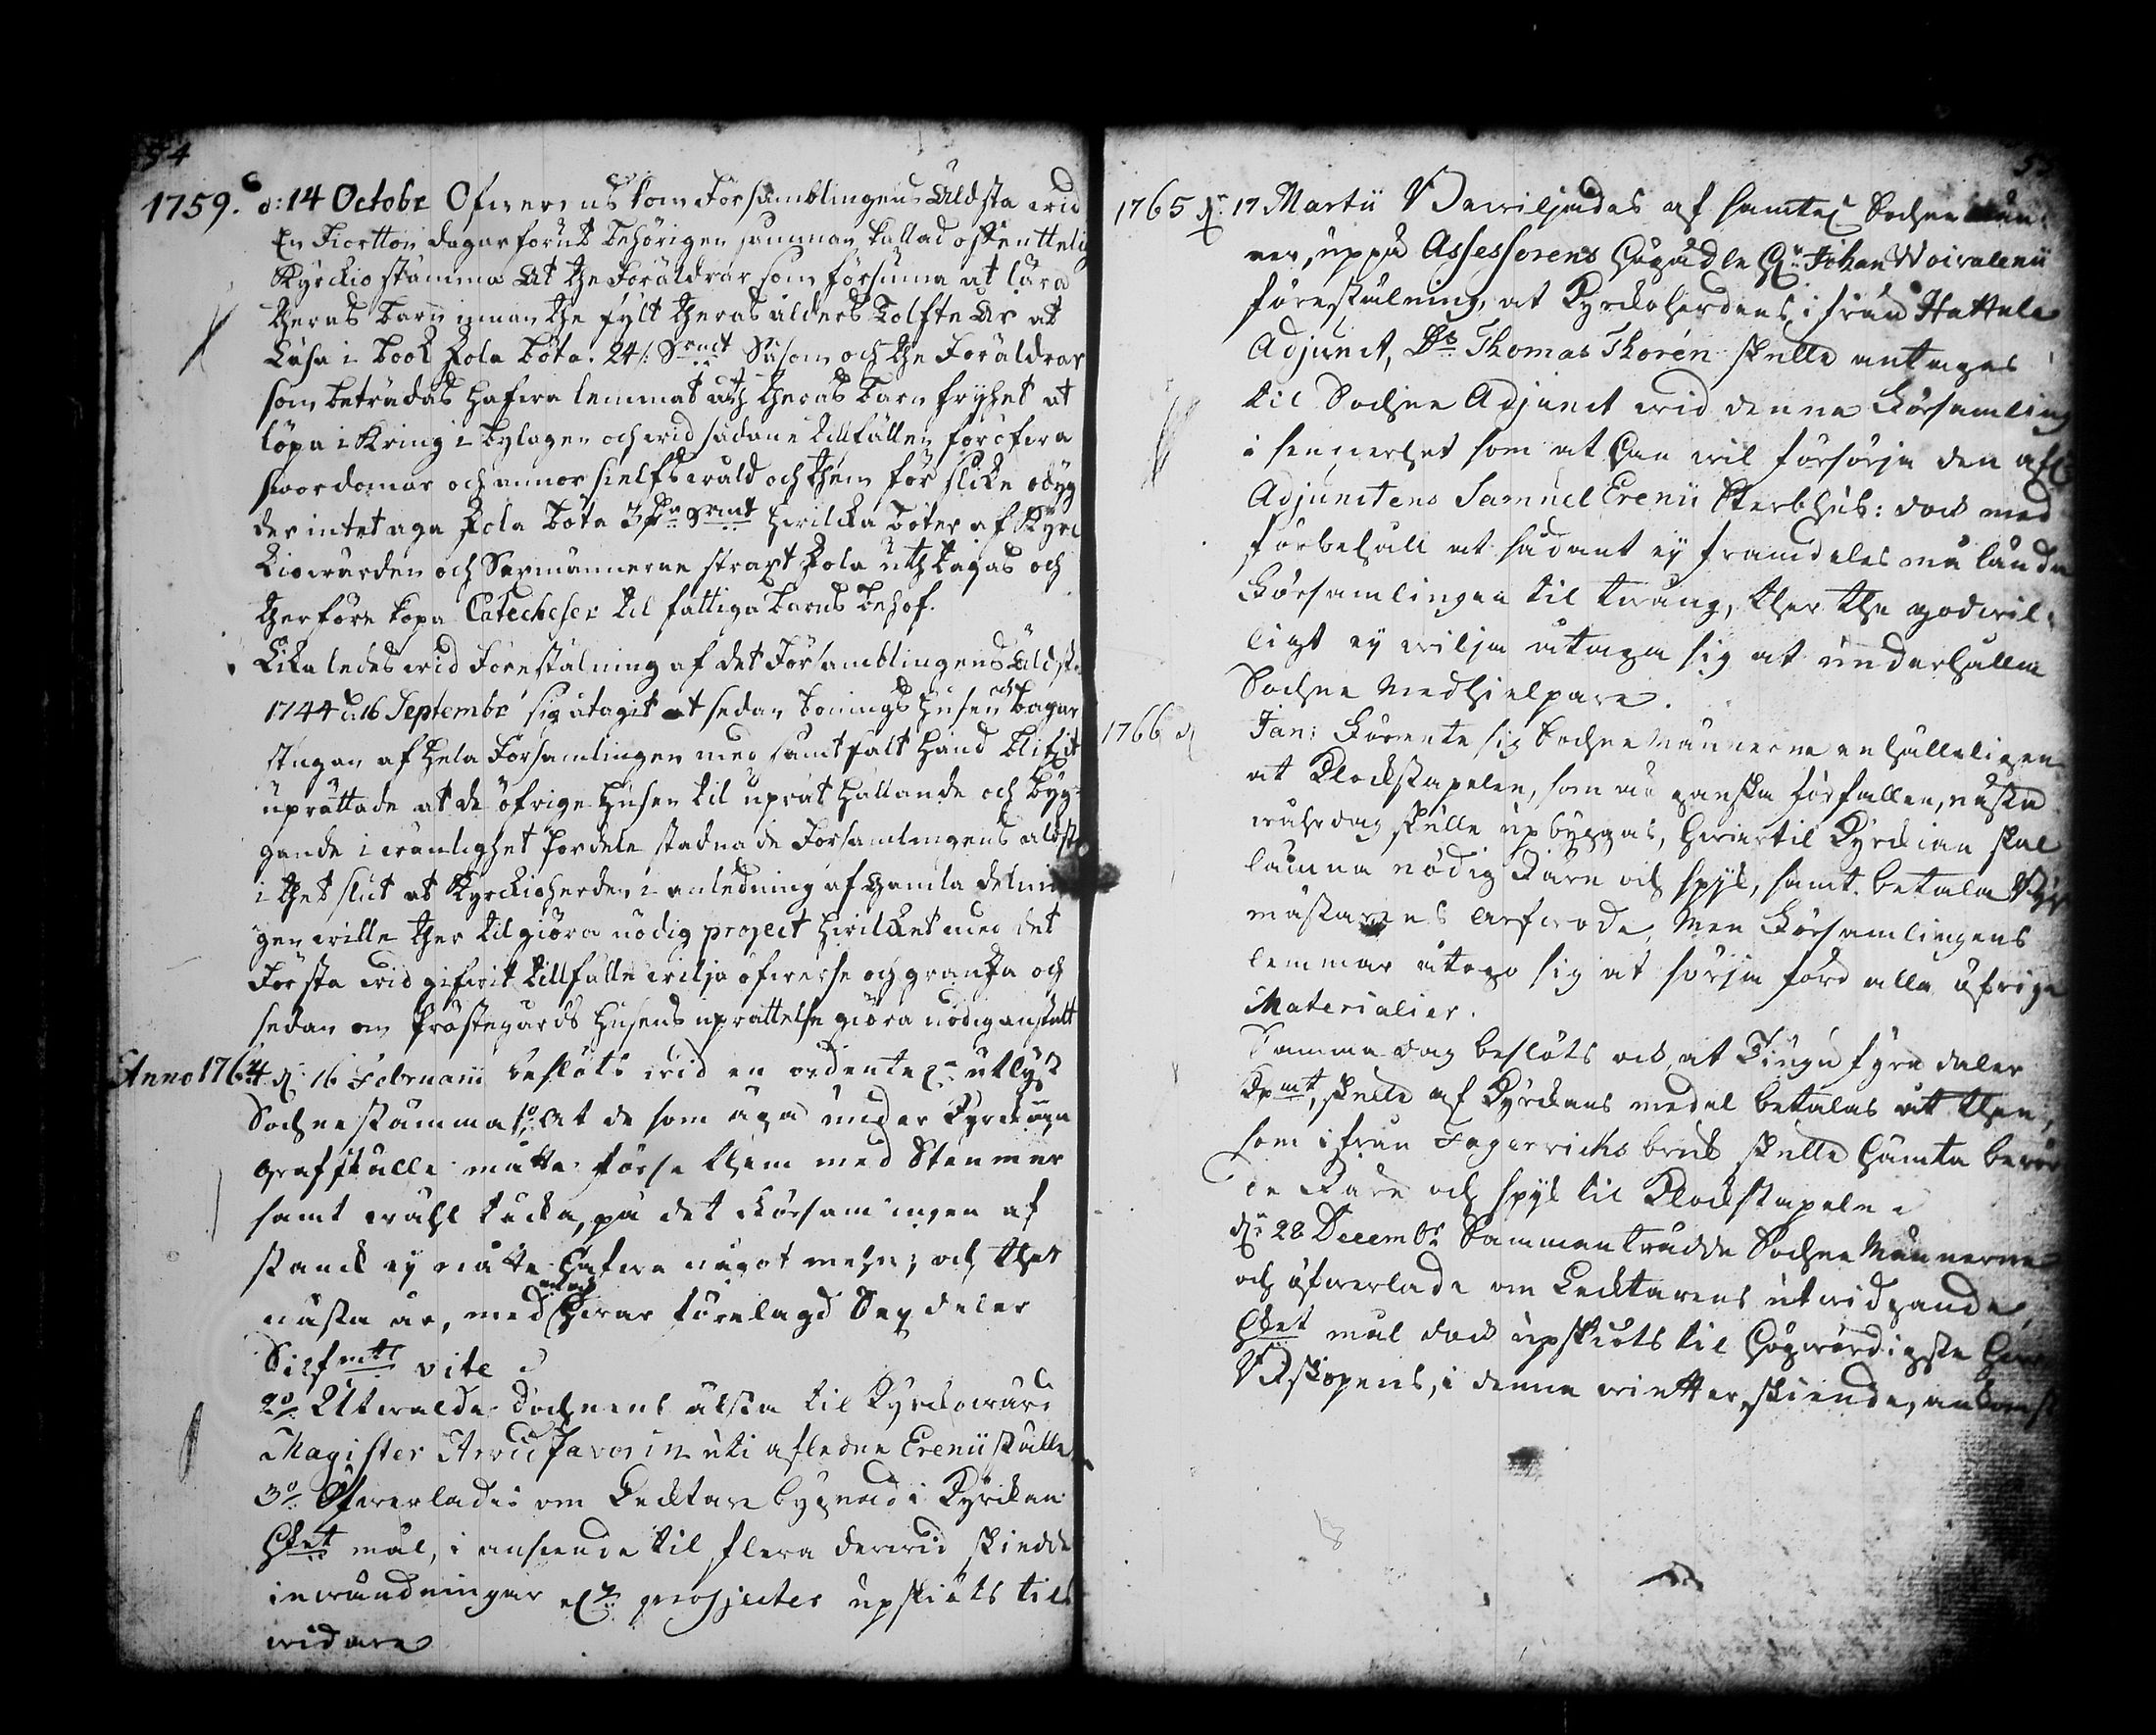 54
1759. d: 14 Octobr Öfwerens kom Församblingens Äldsta wid
En Fiortton dagar förut behörigen samman kallad offenttelig
Kyrckio stämma At the Föräldrar som försumma at lära
theras barn innan the fylt theras ålders Tolfte År at
Läsa i book skola böta. 24/: Srmt Såsom och the Föräldrar
som beträdas hafwa lemnat åth theras barn fryhet at
löpa i Kring i bylagen och wid sådane tillfällen föröfwa
swordomar och annor sielfswåld och them för slike odyg
der intet aga skola böta 3 Srmt hwilcka böter af Kyrc
kiowärden och Sexmännerne straxt skola uthtagas och
therföre köpa Catecheser til fattiga barns behof.
Lika ledes wid Förestälning af det Församblingens Äldsta
1744 d. 16 Septembr sig åtagit at sedan bonings husen och bagar
stugan af hela Församlingen med samt fält hand blifwit
uprättade at de öfrige husen til uprät hållande och byg=
gande i wänlighet fördela stadnade Församlingens äldsta
i thet slut at Kyrckioherden i anledning af gamla delnin
gen wille ther til giöra nödig project hwilcket med det
Första wid gifwit tillfälle wilja öfwerse och granska och
sedan om Prästegårds husens uprättelse giöra nödig anstalt
Anno 1764 d. 16 Februarii beslöts wid en ordentel. utlyst
Sochnestämma 1o At de som äga under Kyrckan
Grafställe måtte förse them med Stenmur
samt wähl täcka, på det Församlingen af
stanck ej måtte hafwa något mehn; och thet
nästa år, med och hwar förelagd Sex daler
Silfmtts vite
2o Utwalde Sochnens älsta til Kyrckowärd
Magister Arvid Favorin uti aflednе Erenii ställe
3o Öfwerlades om Lecktare bygnad i Kyrckan
Hket mål, i anseende til flera derwid skiedde
inwändningar och projecter upskiöts till
widare
55
1765 d. 17 Martii Bewiljades af samtel. Sochne Män=
ner, uppå Assessorens Högädle Hr. Johan Woivalenii
förestälning, at Kyrckoherdens ifrån Hattula
Adjunct, Ds Thomas Thorén skulle antagas
til Sochne Adjunct wid denna Församling
i synnerhet som at han wil försörja den afl.
Adjunctens Samuel Erenii Sterbhus: dock med
förbehåll at sådant ej framdeles må lända
Församlingen til twång, ther the godwil=
ligt ej wilja åtaga sig at underhålla
Sochne Medhielpare.
1766 d. Jan: Förente sig Sochne Männerne enhälleligen
at Klockstapelen, som nu ganska förfallen, nästa
wåhrdag skulle upbyggas, hwartil Kyrckian skal
lämna nödig Järn och spyk, samt betala Byg
mästarens Arfwode, Men Församlingens
lemmar åtogo sig at sörja förd alla öfrige
Materialier.
Samma dag beslöts ock, at Tiugu fyra daler
Kpmt, skulle af Kyrckans medel betalas åt then,
som ifrån Fagerwicks bruk skulle hämta berör
de Järn och spyk til Klockstapeln
d. 28 Decembr Sammanträdde Sochne Männerne
och öfwerlade om Lecktarens utwidgande,
Hket mål dock upskiöts til Högwördigste Herr
Biskopens, i denna wintter, skiende, ankomst